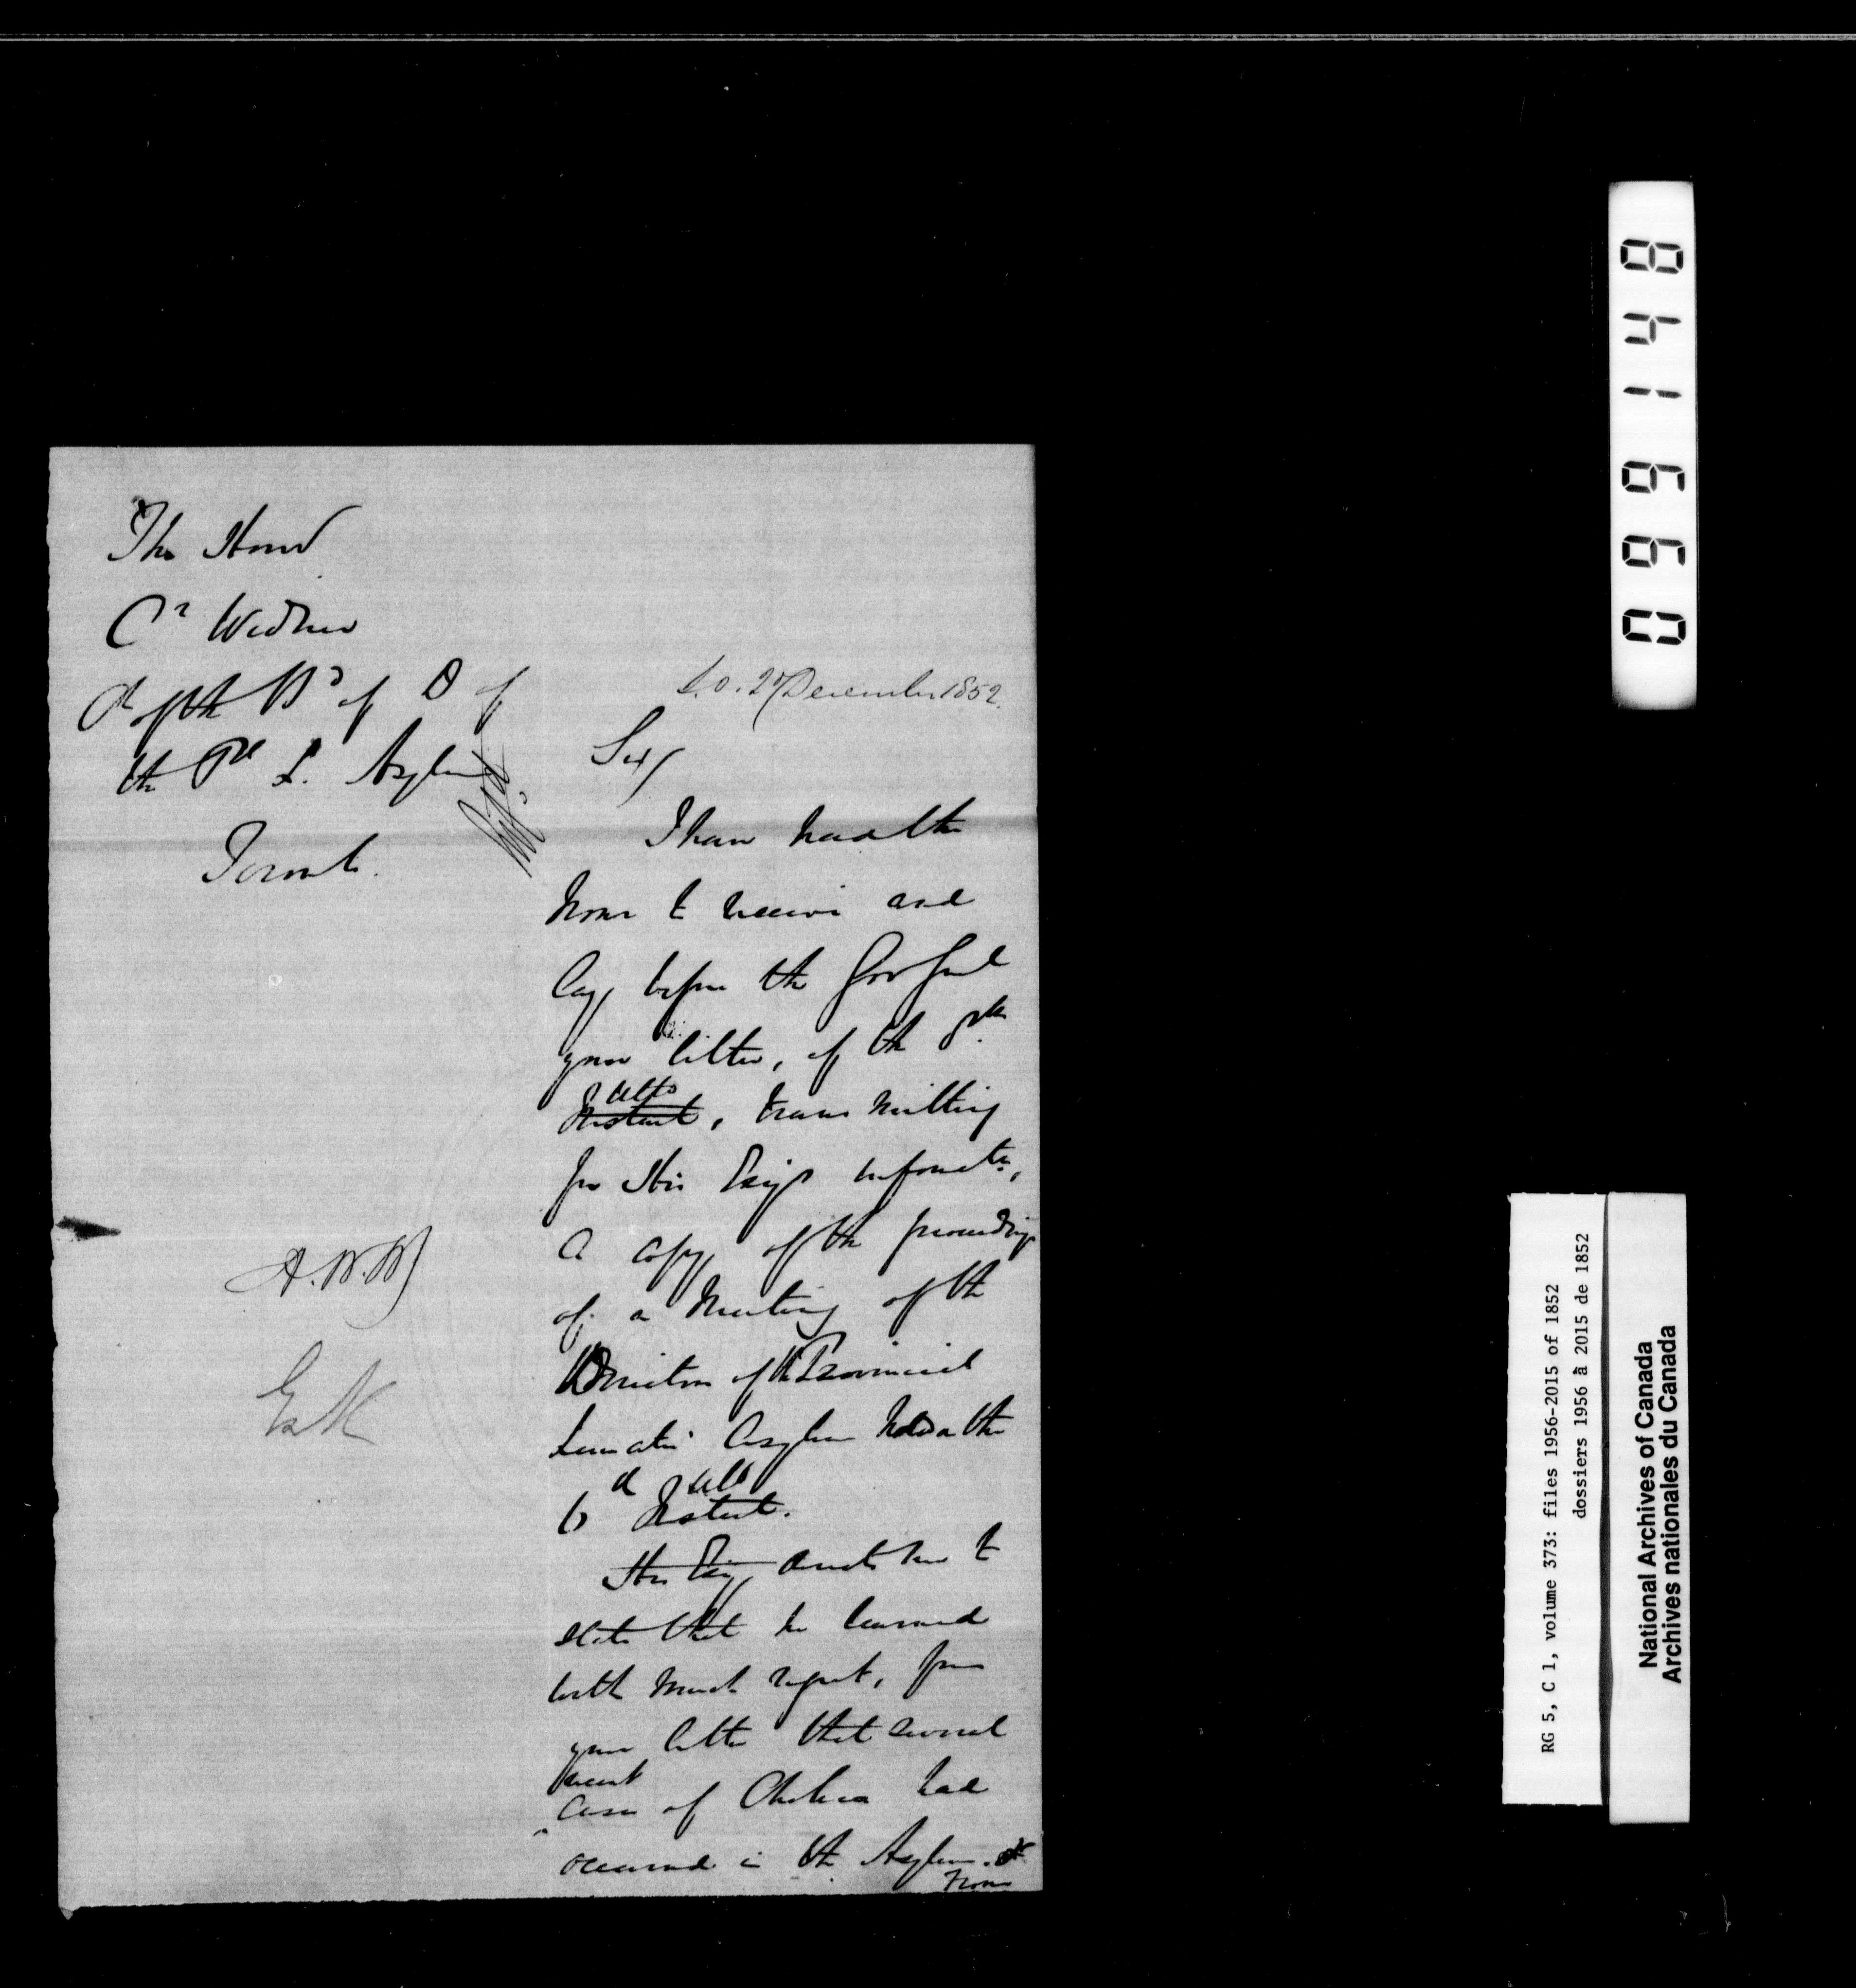 The Honl
C. Widmer
of the Bd of D of
the Pl L. Asylum
Toronto.
S.O. 27 December 1852.
Sir/
I have had the
honor to receive and
lay before the Gov Genl
your letter, of the 8th
Instant ulto, transmitting
for His Excy's informatn,
a copy of the proceedings
of a Meeting of the
Directors of the Provincial
Lunatic Asylum held on the
6 Instant. ulto
His Excy directs me to
state that he learned
with much regret, from
your letter that several
recent
cases of Cholera had
occurred in the Asylum.
From
A.N.M
EAM
841660
RG 5, C 1, volume 373: files 1956-2015 of 1852
dossiers 1956 à 2015 de 1852
National Archives of Canada
Archives nationales du Canada